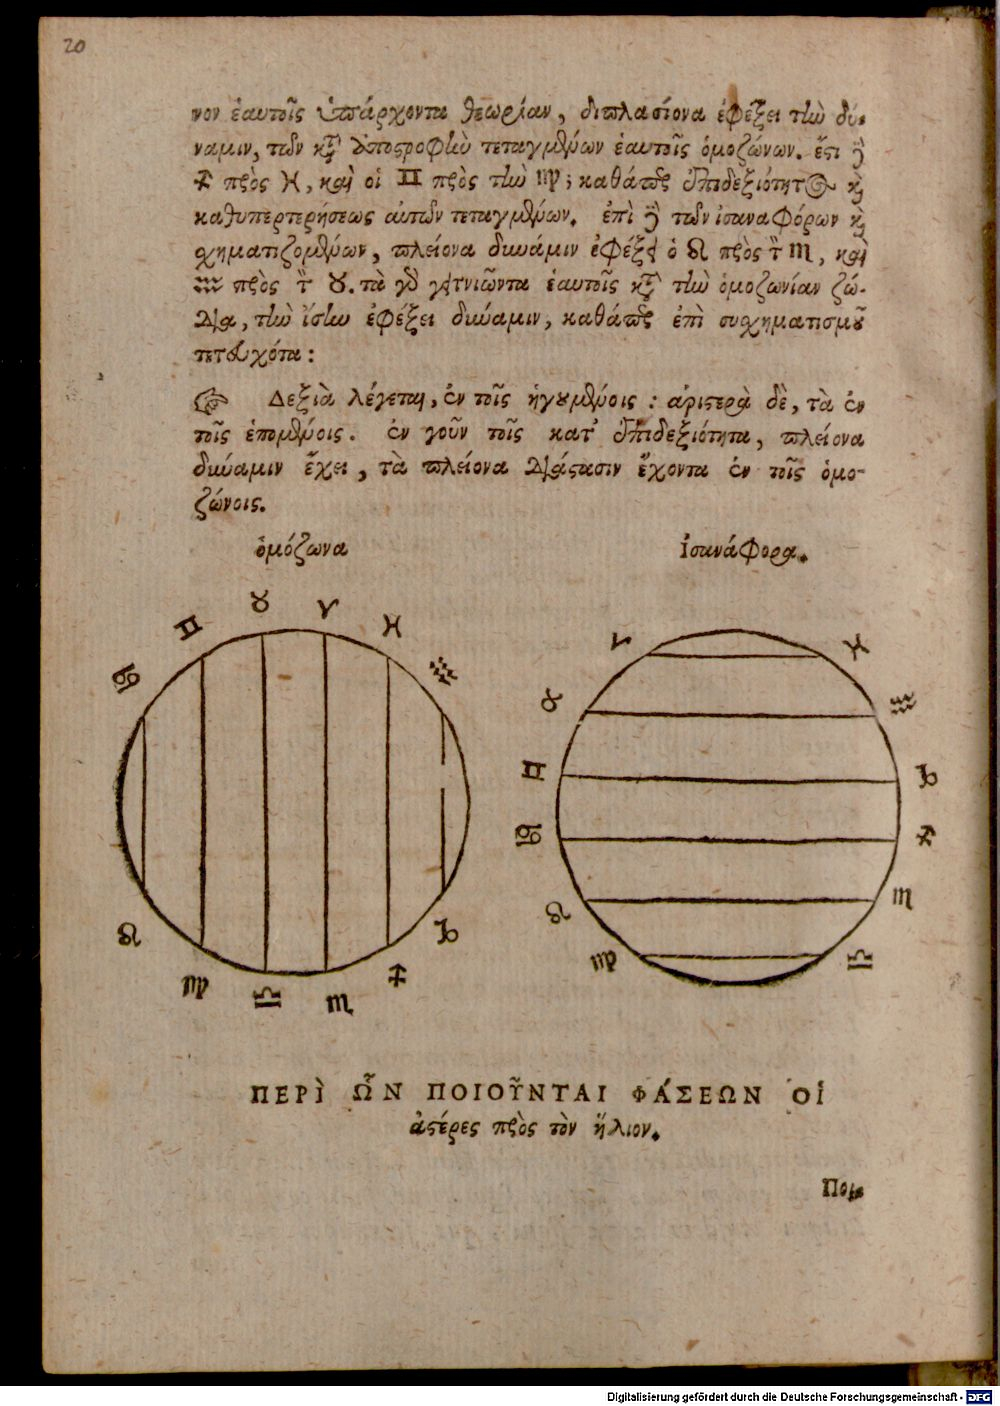 20
νον ἑαυτοῖς ὑπάρχοντα θεωρίαν, διπλασίονα ἐφέξει τὴν δύ-
ναμιν, τῶν κατ' ἀποστροφὴν τεταγμένων ἑαυτοῖς ὁμοζώνων. ἔτι δὲ
♐ πρὸς ♓, καὶ οἱ ♊ πρὸς τὴν ♍; καθάπερ ἐπιδεξιότητος καὶ
καθυπερτερήσεως αὐτῶν τεταγμένων. ἐπὶ δὲ τῶν ἰσαναφόρων καὶ
σχηματιζομένων, πλείονα δύναμιν ἐφέξει ὁ ♌ πρὸς τὸν ♏, καὶ
♒ πρὸς τὸν ♉. τὰ γὰρ γειτνιῶντα ἑαυτοῖς κατὰ τὴν ὁμοζωνίαν ζώ-
δια, τὴν ἴσην ἐφέξει δύναμιν, καθάπερ ἐπὶ συσχηματισμοῦ
τετευχότα:
☞ Δεξιὰ λέγεται, ἐν τοῖς ἡγουμένοις: ἀριστερὰ δὲ, τὰ ἐν
τοῖς ἑπομένοις. ἐν γοῦν τοῖς κατ' ἐπιδεξιότητα, πλείονα
δύναμιν ἔχει, τὰ πλείονα διάστασιν ἔχοντα ἐν τοῖς ὁμο-
ζώνοις.
ὁμόζωνα ἰσανάφορα.
♉ ♈ ♓ ♊ ♒ ♋ ♌ ♍ ♎ ♏ ♐ ♑
♈ ♓ ♉ ♒ ♊ ♑ ♋ ♐ ♌ ♏ ♍ ♎
ΠΕΡῚ ὯΝ ΠΟΙΟΥ͂ΝΤΑΙ ΦΆΣΕΩΝ ΟἹ
ἀστέρες πρὸς τὸν ἥλιον.
Ποι-
Digitalisierung gefördert durch die Deutsche Forschungsgemeinschaft - DFG